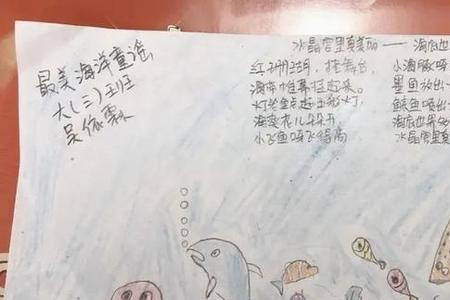 最美海洋童谣
大(三)班
吴依霖
水晶宫里真美丽——海底世
红珊瑚,搭舞台,
海带帷幕拉起来。
灯笼鱼点起五彩灯,
海葵花儿朵朵开,
小飞鱼呀飞得高
小海
墨鱼放出一
鲸鱼喷出一
海底世界
水晶宫里真